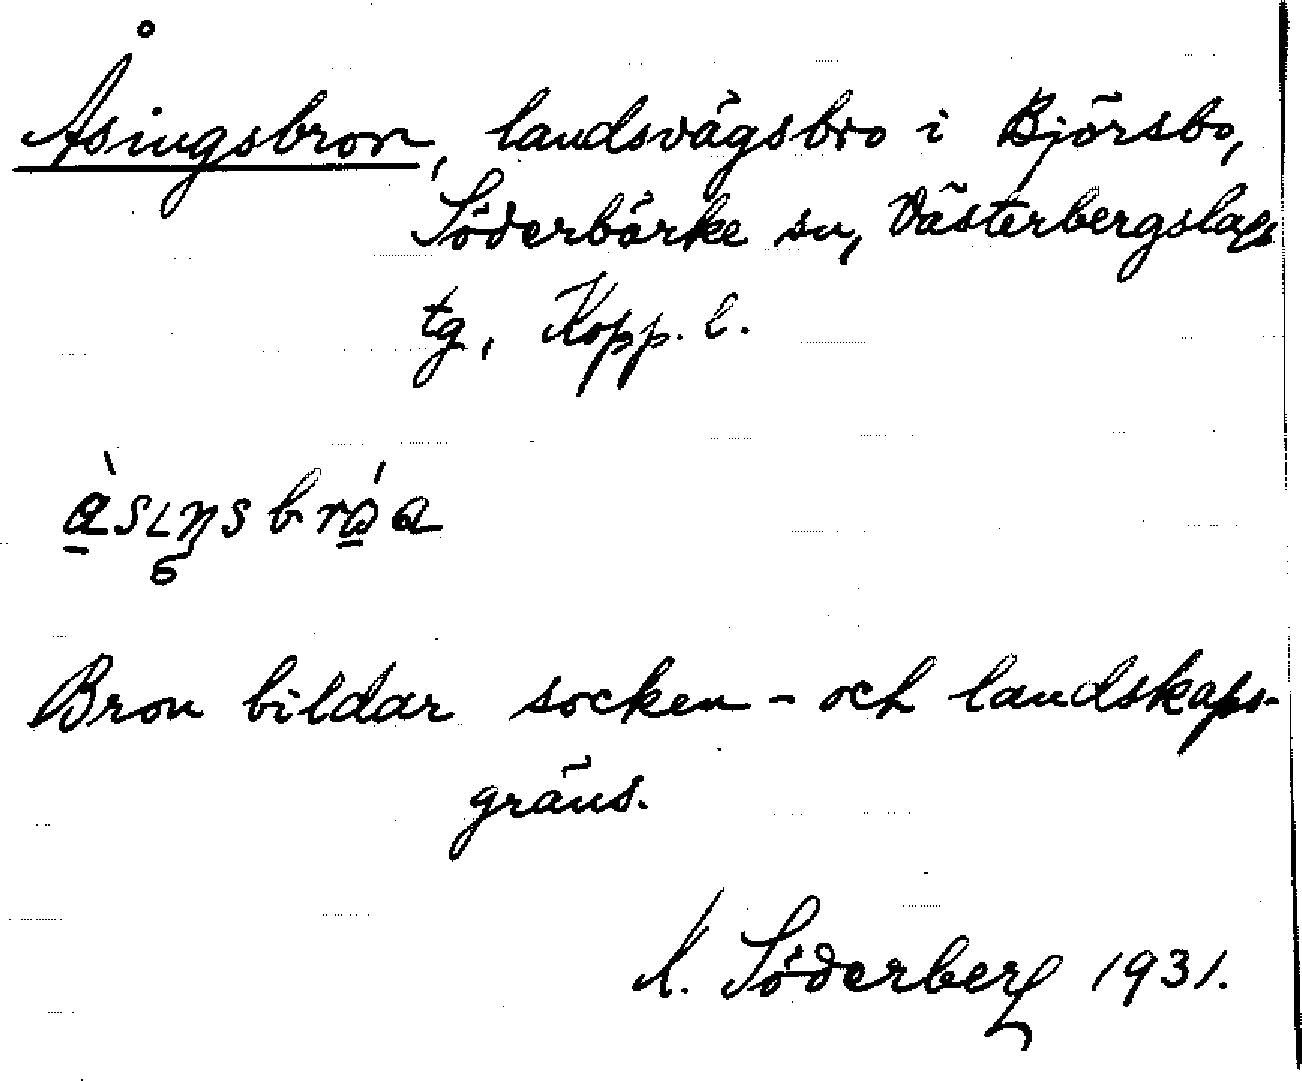 Åsingsbron, landsvägsbro i Björsbo,
Söderbärke sn, Västerbergslags
tg, Kopp. l.
Bron bildar socken- och landskaps-
gräns.
K. Söderberg 1931.